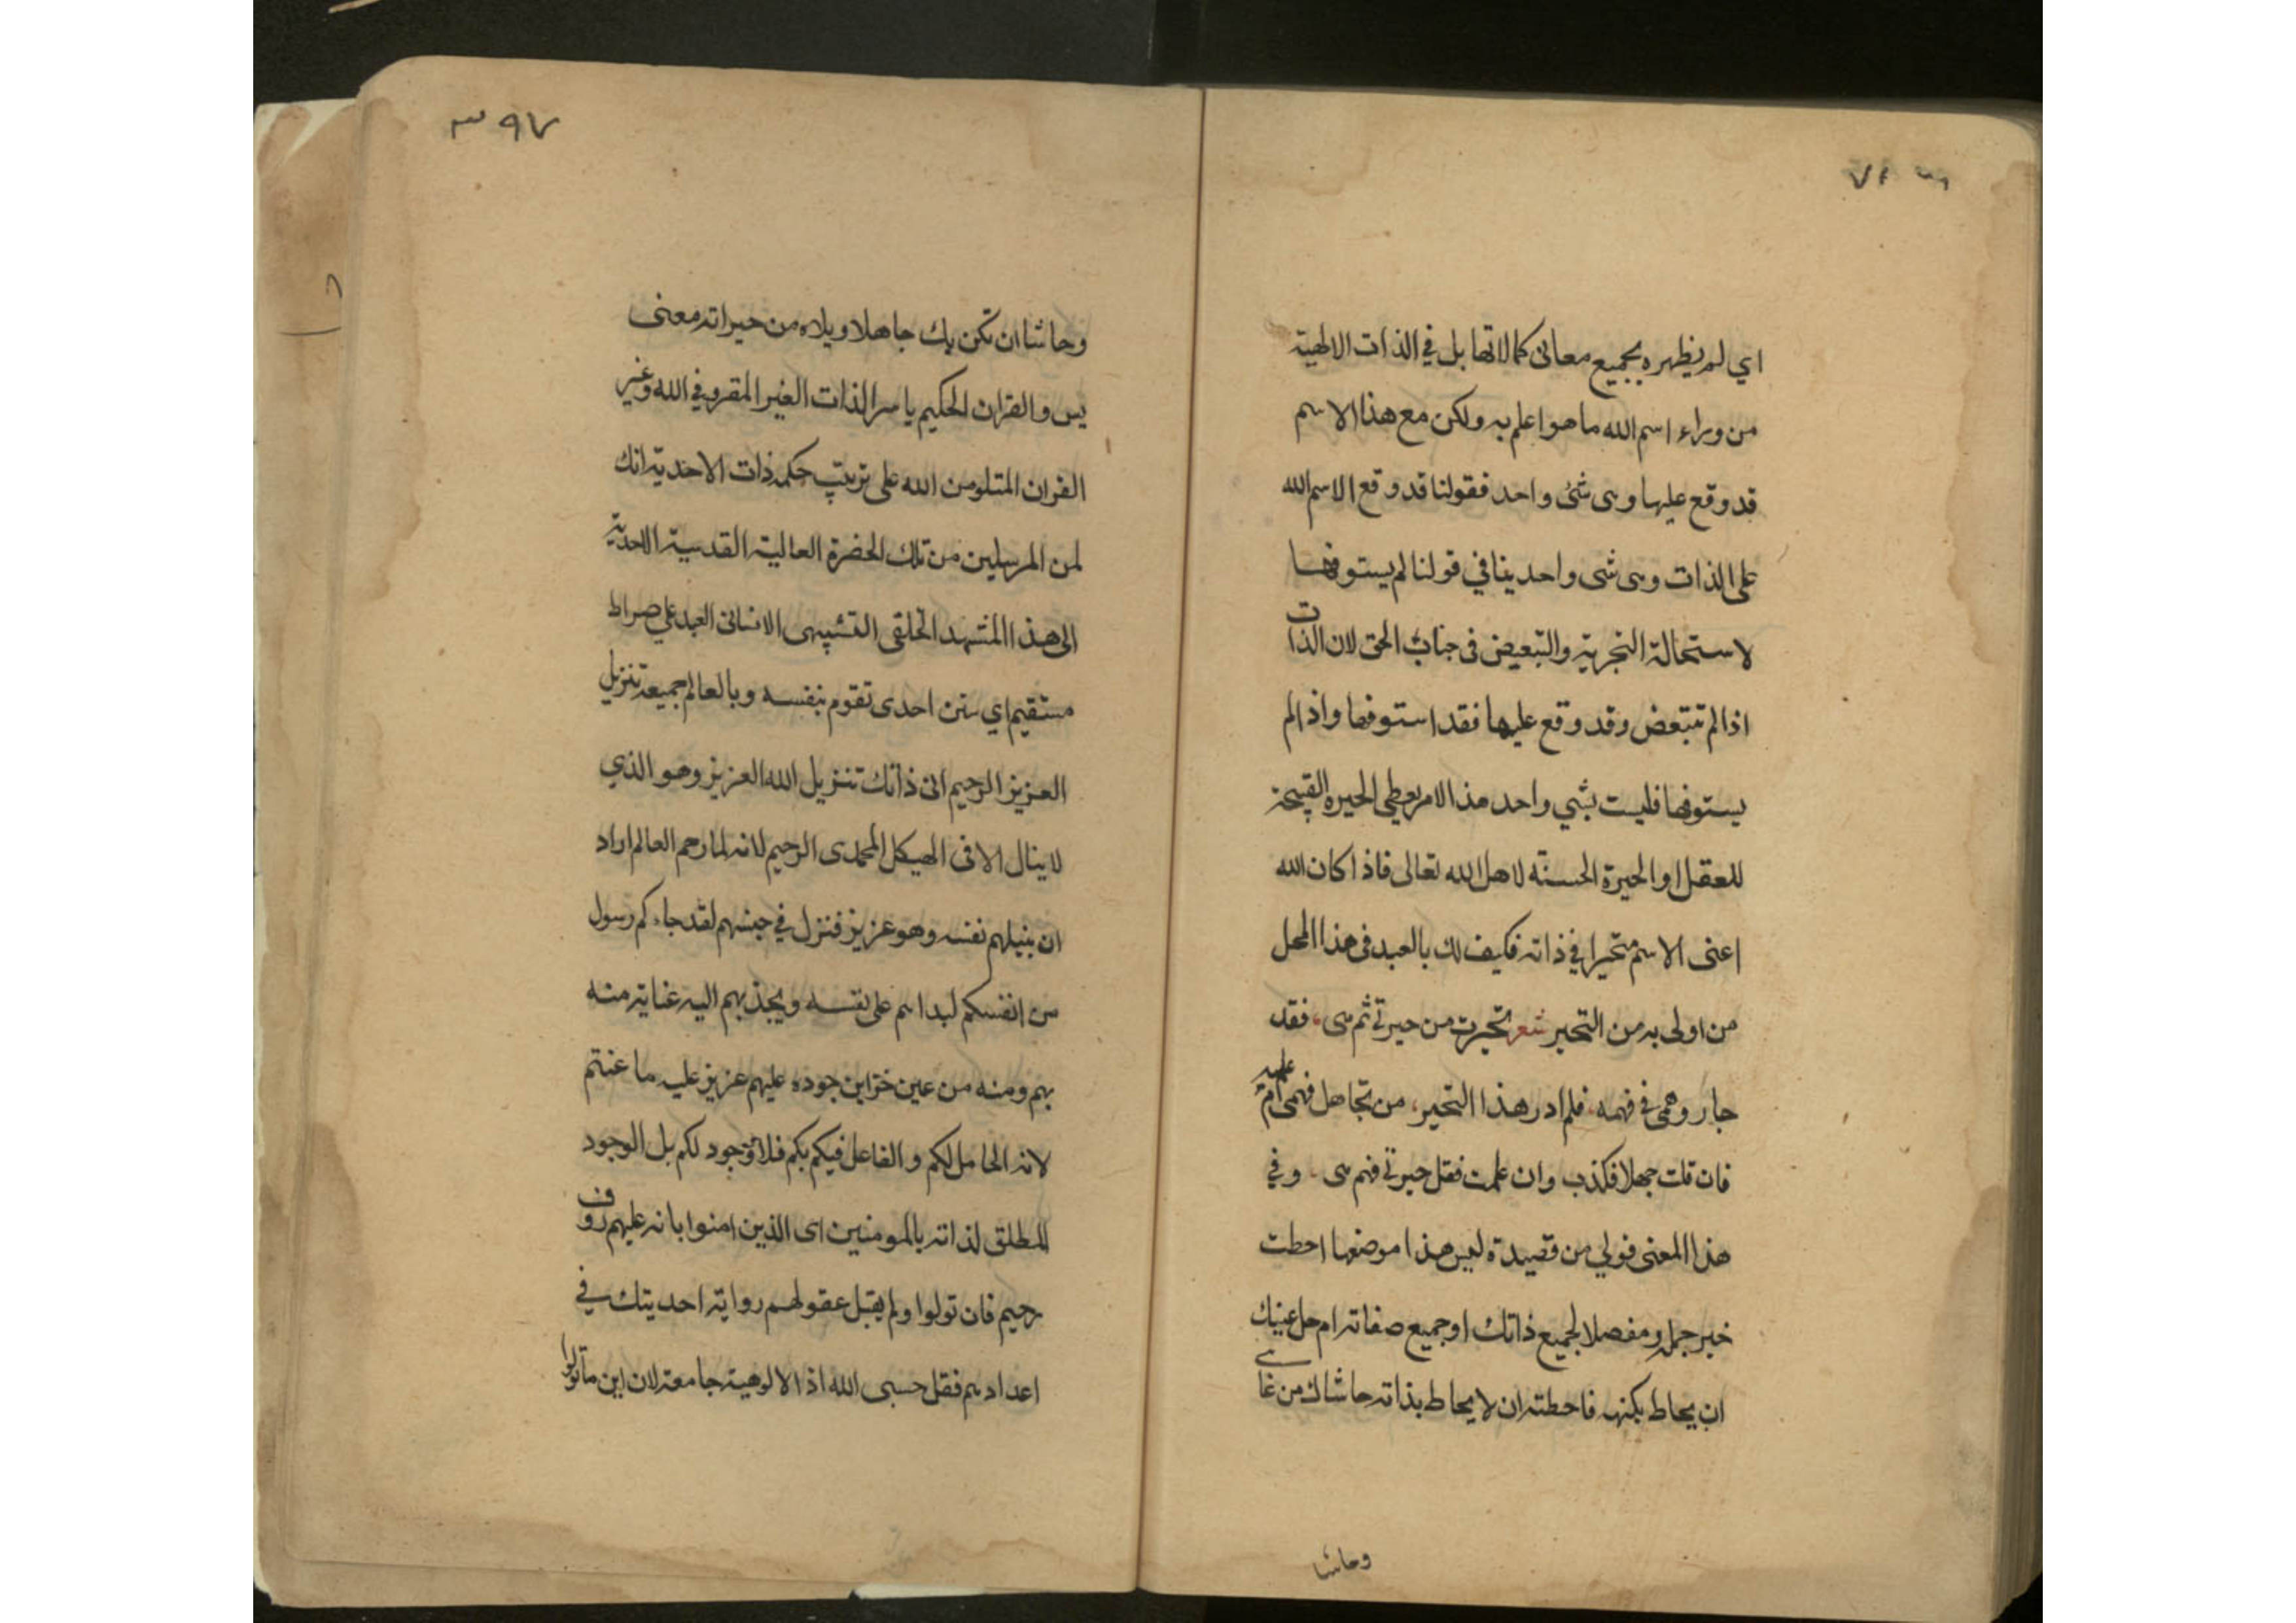 اي لم يظهره بجميع معانى كمالاتها بل في الذات الالهية
من وراء اسم الله ما هو اعلم به ولكن مع هذا الاسم
قد وقع عليها وهى شئ واحد فقولنا قد وقع الاسم الله
على الذات وهى شى واحد ينافي قولنا لم يستوفها
لاستحالة التجزية والتبعيض فى جناب الحق لان الذات
اذا لم تتبعض وقد وقع عليها فقد استوفها واذا لم
يستوفها فليست بشي واحد هذا الامر يعطى الحيرة القبيحة
للعقل او الحيرة الحسنة لاهل الله تعالى فاذا كان الله
اعنى الاسم متحيرا في ذاته فكيف لك بالعبد فى هذا المحل
من اولى به من التحير شعر تحيرت من حيرتي ثم هى، فقد
حار وهمى في فهمه، فلم ادر هذا التحير، من تجاهل فهمى ام علمه
فان قلت جهلا فكذب وان علمت فقل حيرتي فهم هى وفي
هذا المعنى قولي من قصيدة ليس هذا موضعها احطت
خبر جملة ومفصلا لجميع ذاتك او جميع صفاته ام جل عنيك
ان يحاط بكنهه فاحطته ان لا يحاط بذاته حاشاك من غاى
وحاشا
٣٩٧
وحاشا ان تكن بك جاهلا ويلاه من حيراته معنى
يس والقران الحكيم يا سر الذات الغير المقرو في الله وغير
القران المتلو من الله على ترتيب حكمة ذات الاحدية انك
لمن المرسلين من تلك الحضرة العالية القدسية الاحدية
الى هذا المشهد الخلقى التشبيهى الانسانى العبد على صراط
مستقيم اي سنن احدى تقوم بنفسه وبالعالم جميعه تنزيل
العزيز الرحيم انى ذاتك تنزيل الله العزيز وهو الذي
لا ينال الا فى الهيكل المحمدى الرحيم لانه لما رحم العالم اراد
ان ينيلهم نفسه وهو عزيز فنزل في جنسهم لقد جاءكم رسول
من انفسكم لبداهم على نفسه ويجذبهم اليه عناية منه
بهم ومنه من عين خزاين جوده عليهم عزيز عليه ما عنتم
لانه الحامل لكم والفاعل فيكم بكم فلا وجود لكم بل الوجود
المطلق لذاته بالمومنين اى الذين امنوا بانه عليهم روف
رحيم فان تولوا ولم يقبل عقولهم رواية احديتك في
اعدادهم فقل حسبى الله اذ الالوهية جامعة لان اين ما تولوا